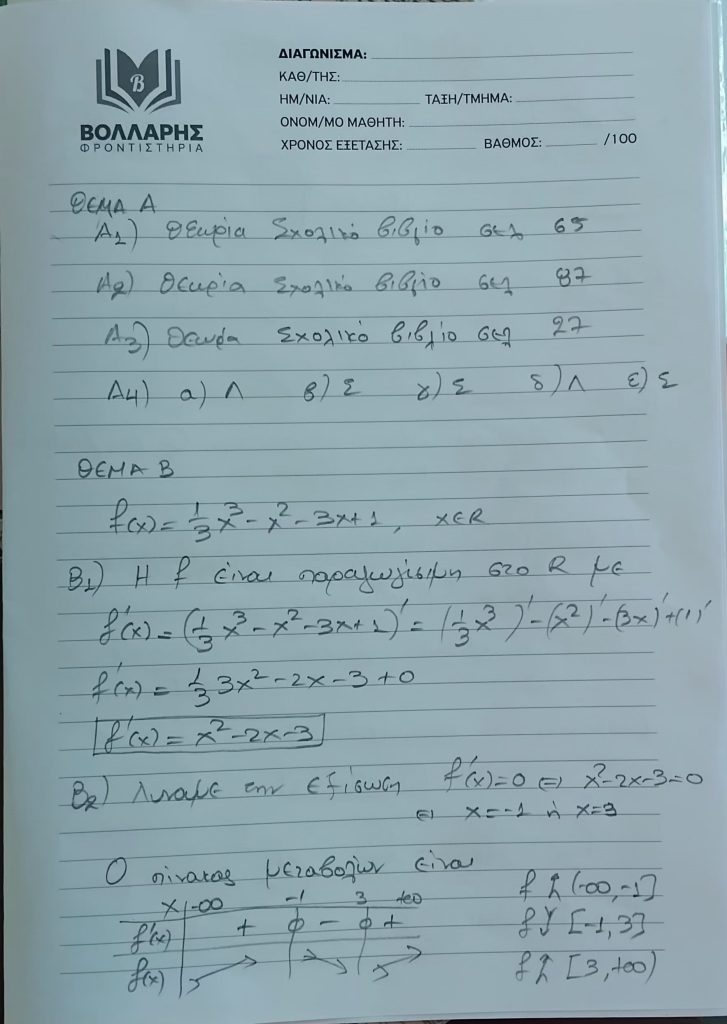 ΒΟΛΛΑΡΗΣ
ΦΡΟΝΤΙΣΤΗΡΙΑ
ΔΙΑΓΩΝΙΣΜΑ:
ΚΑΘ/ΤΗΣ:
ΗΜ/ΝΙΑ: ΤΑΞΗ/ΤΜΗΜΑ:
ΟΝΟΜ/ΜΟ ΜΑΘΗΤΗ:
ΧΡΟΝΟΣ ΕΞΕΤΑΣΗΣ: ΒΑΘΜΟΣ: /100
ΘΕΜΑ Α
Α1) Θεωρία Σχολικό βιβλίο σελ 65
Α2) Θεωρία Σχολικό βιβλίο σελ 87
Α3) Θεωρία Σχολικό βιβλίο σελ 27
Α4) α) Λ β) Σ γ) Σ δ) Λ ε) Σ
ΘΕΜΑ Β
f(x) = 1/3 x³ - x² - 3x + 1, x∈R
Β1) Η f είναι παραγωγίσιμη στο R με
f'(x) = (1/3 x³ - x² - 3x + 1)' = (1/3 x³)' - (x²)' - (3x)' + (1)'
f'(x) = 1/3 3x² - 2x - 3 + 0
f'(x) = x² - 2x - 3
Β2) Λυναμε την εξίσωση f'(x) = 0 ⇔ x² - 2x - 3 = 0
⇔ x = -1 ή x = 3
Ο πίνακας μεταβολών είναι
x -∞ -1 3 +∞
f'(x) + 0 - 0 +
f(x) ↗ ↘ ↗
f ↑ (-∞, -1]
f ↓ [-1, 3]
f ↑ [3, +∞)